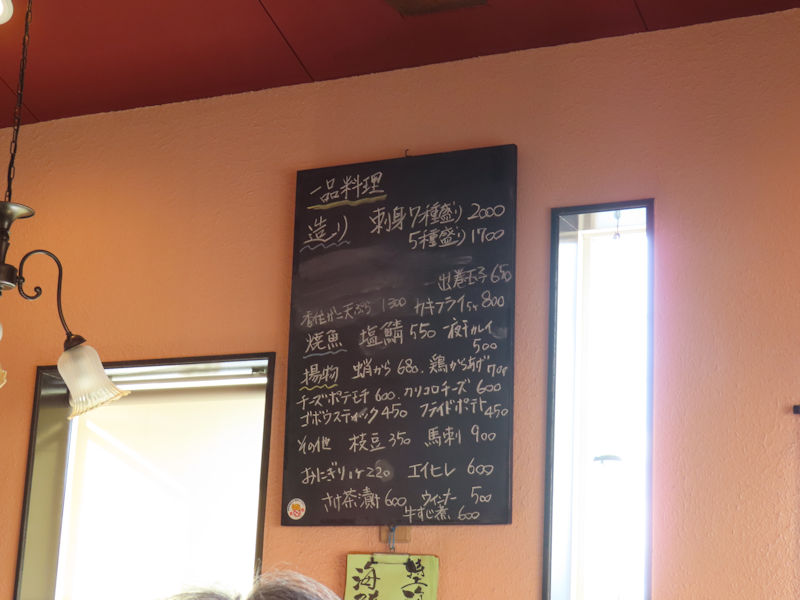 一品料理
造り 刺身7種盛り 2000
5種盛り 1700
出巻玉子 650
天ぷら 1300 カキフライ5ヶ 800
焼魚 塩鯖 550 一夜干カレイ
500
揚物 蛸から 680. 鶏からあげ 700
チーズポテモチ 600. カリコロチーズ 600
ゴボウスティック 450 フライドポテト 450
その他 枝豆 350 馬刺 900
おにぎり1ヶ 220 エイヒレ 600
さけ茶漬け 600 ウィンナー 500
牛すじ煮 600
海